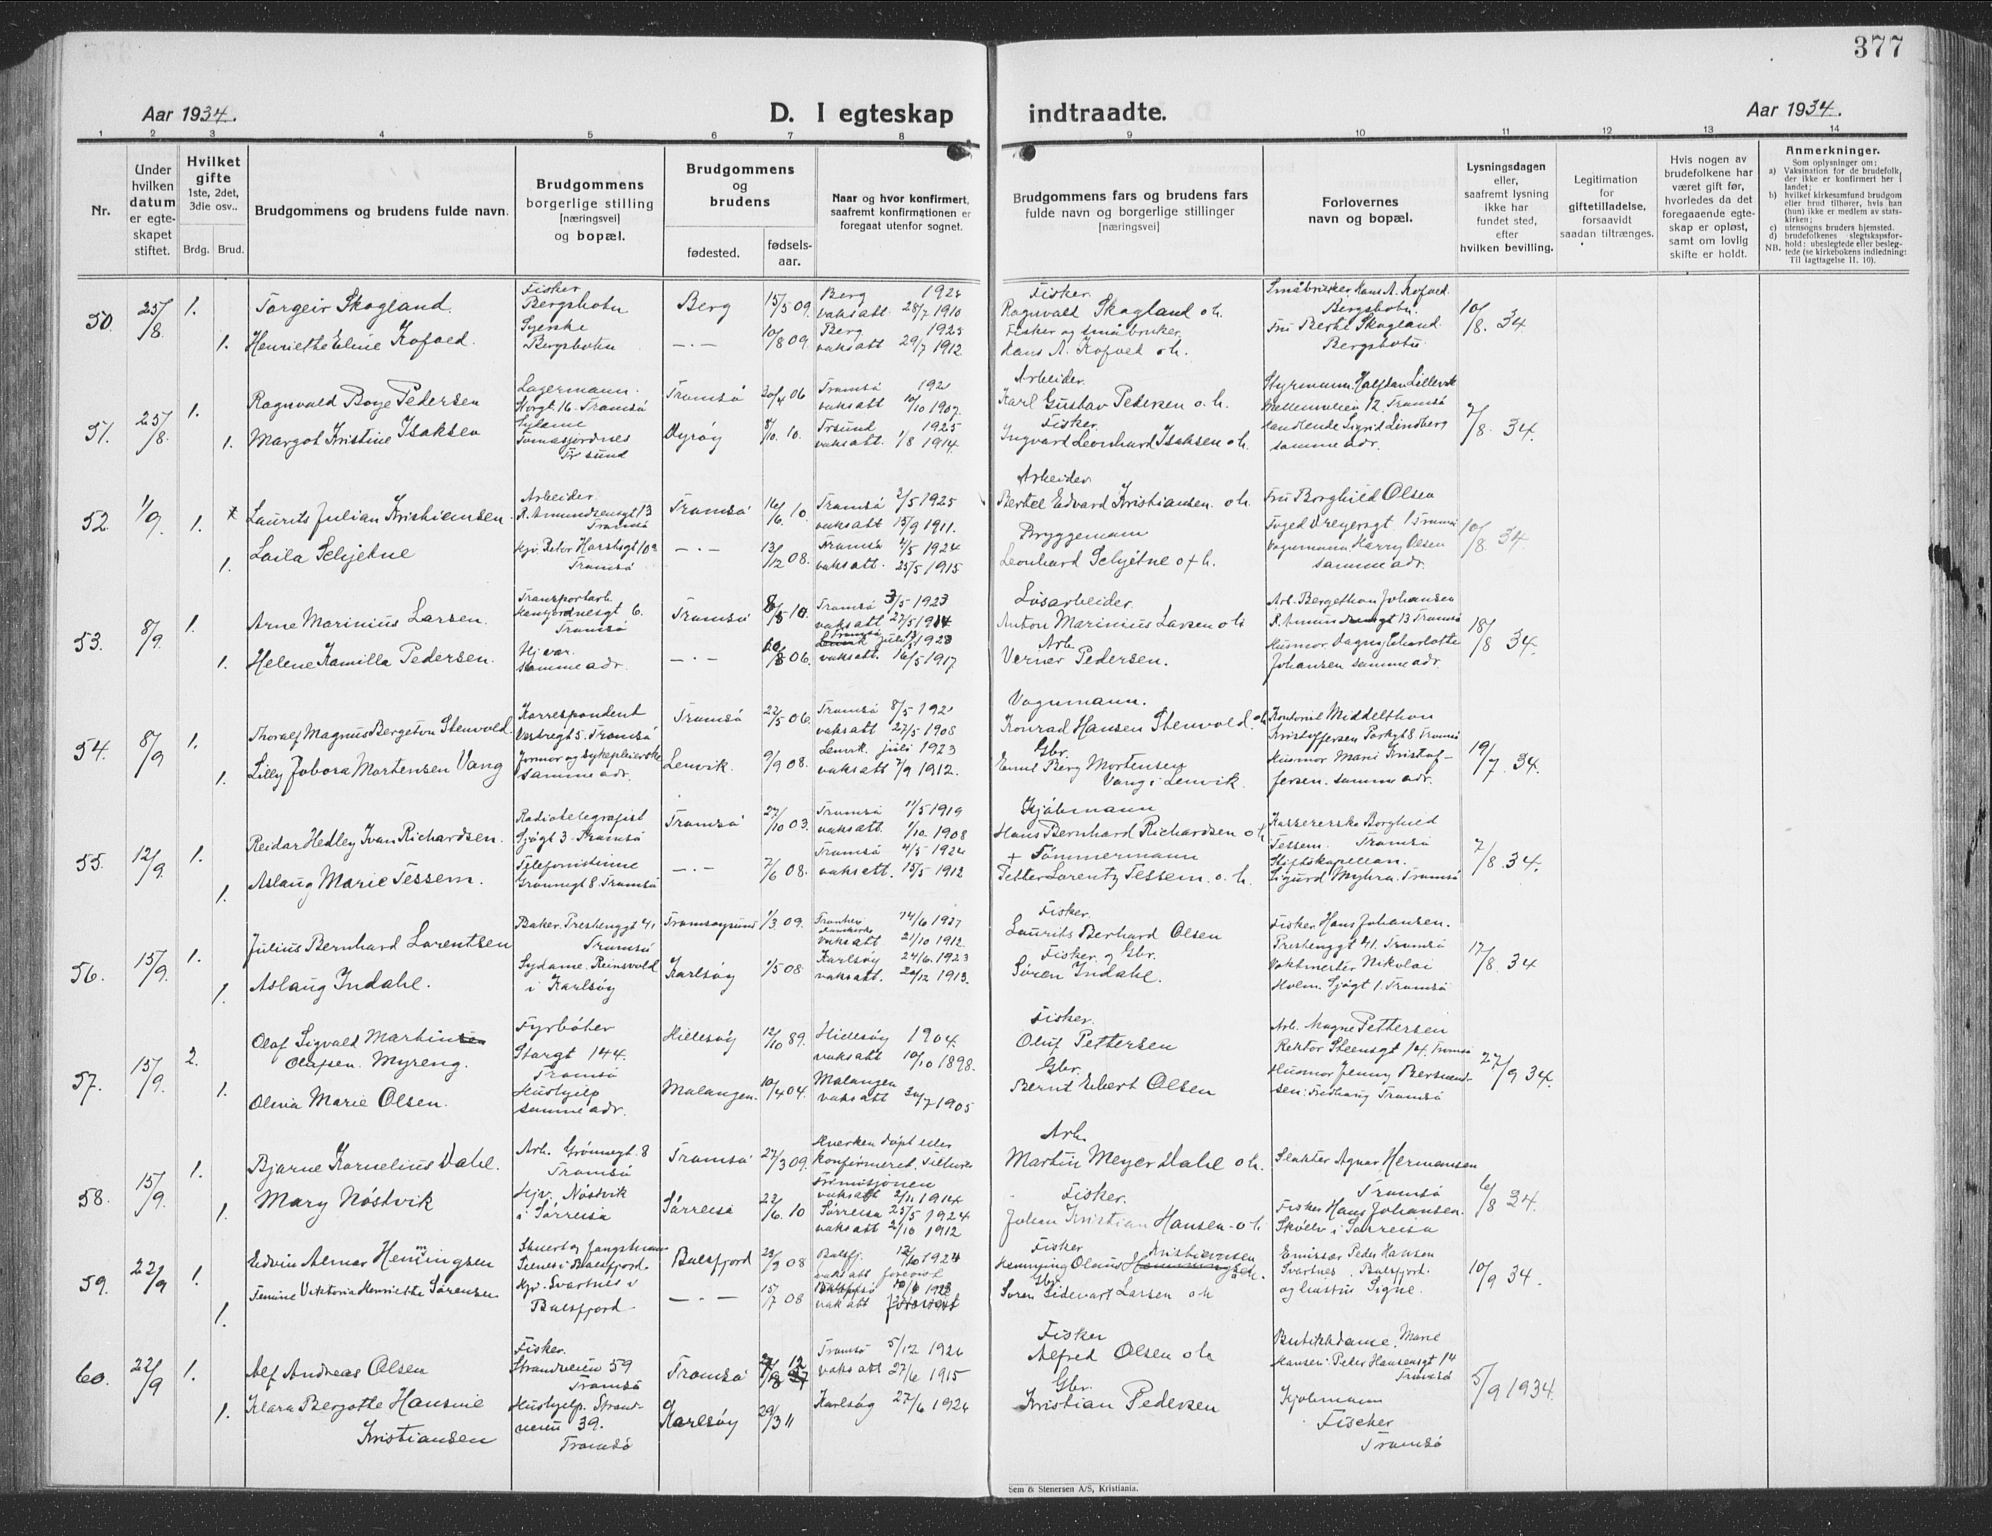 377
Aar 1934.
D. I egteskap
indtraadte.
Aar 1934.
1 2 3 4 5 6 7 8 9 10 11 12 13 14
Nr.
Under hvilken datum er egteskapet stiftet.
Hvilket gifte
1ste, 2det, 3die osv..
Brdg. Brud.
Brudgommens og brudens fulde navn.
Brudgommens borgerlige stilling [næringsvei] og bopæl.
Brudgommens og brudens
fødested.
fødselsaar.
Naar og hvor konfirmert, saafremt konfirmationen er foregaat utenfor sognet.
Brudgommens fars og brudens fars fulde navn og borgerlige stillinger [næringsvei]
Forlovernes navn og bopæl.
Lysningsdagen eller, saafremt lysning ikke har fundet sted, efter hvilken bevilling.
Legitimation for giftetilladelse, forsaavidt saadan tiltrænges.
Hvis nogen av brudefolkene har været gift før, hvorledes da det foregaaende egteskap er opløst, samt om lovlig skifte er holdt.
Anmerkninger.
Som oplysninger om:
a) Vaksination for de brudefolk, der ikke er konfirmert her i landet;
b) hvilket kirkesamfund brudgom eller brud tilhører, hvis han (hun) ikke er medlem av statskirken;
c) utensogns bruders hjemsted.
d) brudefolkenes slegtskapsforhold: ubeslegtede eller beslegtede (se kirkebokens indledning: Til Iagttagelse II. 10).
NB.
50. 25/8 1. Torgeir Skogland. Fisker Bergsbotn Berg 15/5 09. Berg 1924 vaksatt 28/7 1910 Fisker. Ragnvald Skogland o.h. Småbruker Hans A. Kofoed Bergsbotn. 10/8. 34
1. Henriette Eline Kofoed. Syerske Bergsbotn — . — 10/8 09. Berg 1925 vaksatt 29/7 1912. Fisker og småbruker. Hans A. Kofoed o.h. Fru Berte Skogland. Bergsbotn
51. 25/8. 1. Ragnvald Boye Pedersen Lagermann. Storgt. 16. Tromsö Tromsö 30/4 06 Tromsö 1921 vaksatt 10/10 1907. Arbeider. Karl Gustav Pedersen o.h. Styrmann. Halfdan Lillevik Mellemveien 12. Tromsö 7/8. 34.
1. Margot Kristine Isaksen Dyröy 8/10. 10. 1925 vaksatt. 1/8 1914. Fisker. Ingvard Leonhard Isaksen o.h. Sigrid Lindberg samme adr.
52. 1/9. 1. Laurits Julian Kristiansen. Arbeider R. Amundsensgt 13 Tromsö Tromsö 16/6. 10. Tromsö 2/5 1925 vaksatt 15/9 1911. Arbeider Bertel Edvard Kristiansen. o.h. Fru Borghild Olsen Foged Dreyersgt 1 Tromsö 10/8 34.
1. Laila Schjetne Hjv. Peter Hansensgt 10a Tromsö — . — 13/12 08. Tromsö 4/5 1924 vaksatt. 25/5 1915 Bryggemann Leonhard Schjetne o.f.h. Vognmann Harry Olsen samme adr.
53. 8/9. 1. Arne Marinius Larsen. Transportarb. 6. Tromsö Tromsö 8/5 10. Tromsö 3/5 1923 vaksatt 27/5 1914 Lösarbeider. Anton Marinius Larsen o.h Arb. Bergethon Johansen R. Amundsensgt 13 Tromsö 18/8 34.
1. Helene Kamilla Pedersen. Hj. var. samme adr. — . — 06. Tromsö 1923 vaksatt. 16/5 1917. Arb. Verner Pedersen. Husmor Dagny Charlotte Johansen samme adr.
54. 8/9 1. Thoralf Magnus Bergeton Stenvold. Korrespondent Tromsö Tromsö 22/5 06. Tromsö 8/5 1921 vaksatt. 27/5 1908 Vognmann. Konrad Hansen Stenvold. o.h. Middelthon Kristoffersen Parkgt 8 Tromsö 19/7. 34.
1. Lilly Jobora Mortensen Vang Jormor og sykepleierske samme adr. Lenvik. 9/9 08. Lenvik. juli 1923 vaksatt 7/9 1912. Gbr. Emil Berg Mortensen Vang i Lenvik. Husmor Mari Kristoffersen. samme adr.
55. 12/9. 1. Reidar Hedley Ivan Richardsen. Radiotelegrafist Sjögt 3. Tromsö Tromsö 27/10 03. Tromsö 11/5 1919 vaksatt. 1/10. 1908 Kjöbmann Hans Bernhard Richardsen o.h Kassererske Borghild Tessem. Tromsö 7/8. 34.
1. Aslaug Marie Tessem. Telefonistinne Grönnegt 8. Tromsö — . — 7/6 08. Tromsö 4/5 1924 vaksatt. 15/5 1912 + Tömmermann Petter Lorentz Tessem. o. h. Stiftskapellan. Sigurd Myhra. Tromsö
56. 15/9. 1. Julius Bernhard Lorentzen Baker. Prestenggt 41. Tromsö Tromsöysund 1/3 09. 14/6 1927 vaksatt 21/10 1912. Fisker. Laurits Berhard Olsen Fisker Hans Johansen. Prestenggt 41. Tromsö 17/8. 34
1. Aslaug Indahl. Sydame. Reinsvold i Karlsöy Karlsöy 1/5 08 Karlsöy 24/6. 1923 vaksatt. 20/12 1913. Fisker og Gbr. Sören Indahl. Vaktmester Nikolai Holm. Sjögt 1. Tromsö
57. 15/9. 2. Olaf Sigvald Martinsen Olafsen Myreng. Fyrböter Storgt 144. Tromsö Hillesöy 12/10 89. Hillesöy 1904. vaksatt 10/10 1898. Fisker. Oluf Pettersen Arb. Magne Pettersen Rektor Steensgt 14. Tromsö 27/9 34.
1. Olina Marie Olsen. Hushjelp samme adr. Malangen. 10/4 04. Malangen vaksatt 30/7 1905 Gbr. Bernt Eibert Olsen Husmor Jenny Berntsen: Tromsö
58. 15/9. 1. Bjarne Kornelius Dahl. Arb. Grönnegt. 8 Tromsö Tromsö 27/3 09. Hverken döpt eller konfirmeret. Tilhörer Frimisjonen vaksatt 2/11 1914 Arb. Martin Meyer Dahl o.h. Slakter Agnar Hermansen Tromsö 6/8 34.
1. Mary Nöstvik Hjv. Nöstvik i Sörreisa Sörreisa 23/6. 10 Sörreisa 25/5 1924 vaksatt 2/10 1912 Fisker. Johan Kristian Hansen. o.h. Fisker Hans Johansen. Skölv i Sörreisa
59. 22/9 1. Edvin Almar Hemmingsen Balsfjord Balsfjord 23/9 08 Balsfj. 12/10 1924 vaksatt forevist Fisker Hemming Olaus Kristiansen Emissær Peder Hansen Svartnes. Balsfjord. 10/9 34.
1. Femine Viktoria Henriette Sörensen Hjv. Svartnes i Balsfjord — . — 15/7 08 1923 vaksatt forevist Gbr. Sören Sidevart Larsen o.h og hustru Signe.
60. 22/9 1. Alf Andreas Olsen Fisker. Strandveien 59 Tromsö Tromsö Tromsö 5/12 1926 vaksatt 27/6 1915 Fisker Alfred Olsen o.h Butikkdame. Marie Hansen: Peter Hansensgt 14 Tromsö 5/9 1934.
1. Klara Bergotte Hansine Kristiansen Hushjelp. Strandveien 39. Tromsö Karlsöy 29/3 11 Karlsöy 27/6 1926 Gbr. Kristian Pedersen Kjöbmann Fischer Tromsö
Sem & Stenersen A/S, Kristiania.